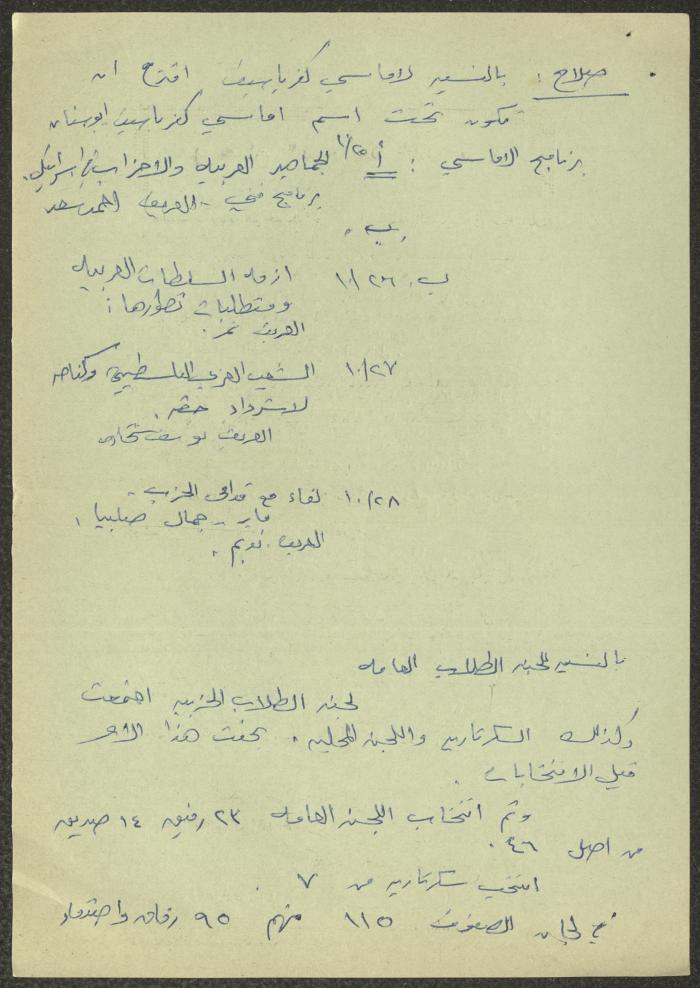 صلاح : بالنسبه لاماسي كفرياسيف اقترح ان
تكون تحت اسم اماسي كفرياسيف ابوسنان
برنامج الاماسي : أ ١٠/٢٥ الجماهير العربيه والاحزاب في اسرائيل.
برنامج فني - العريف احمد سعد
ب .
ب. ١٠/٢٦ ازمه السلطات العربيه
ومتطلبات تطورها :
العريف نمر.
١٠/٢٧ الشعب العربي الفلسطيني وكفاحه
لاسترداد حقه .
العريف يوسف
١٠/٢٨ لقاء مع قدامى الحزب -
جمال
العريف .
بالنسبه للجنه الطلاب العامه
لجنه الطلاب الحزبيه اجتمعت
وكذلك السكرتاريه واللجنه المحليه . بحثت هذا الامر
قبل الانتخابات .
وتم انتخاب اللجنه العامه ٢٣ رفيق ١٤ صديق
من اصل ٤٦ .
انتخب سكرتاريه من ٧ .
في لجان الصفوف ١١٥ منهم ٩٥ رفاق واصدقاء